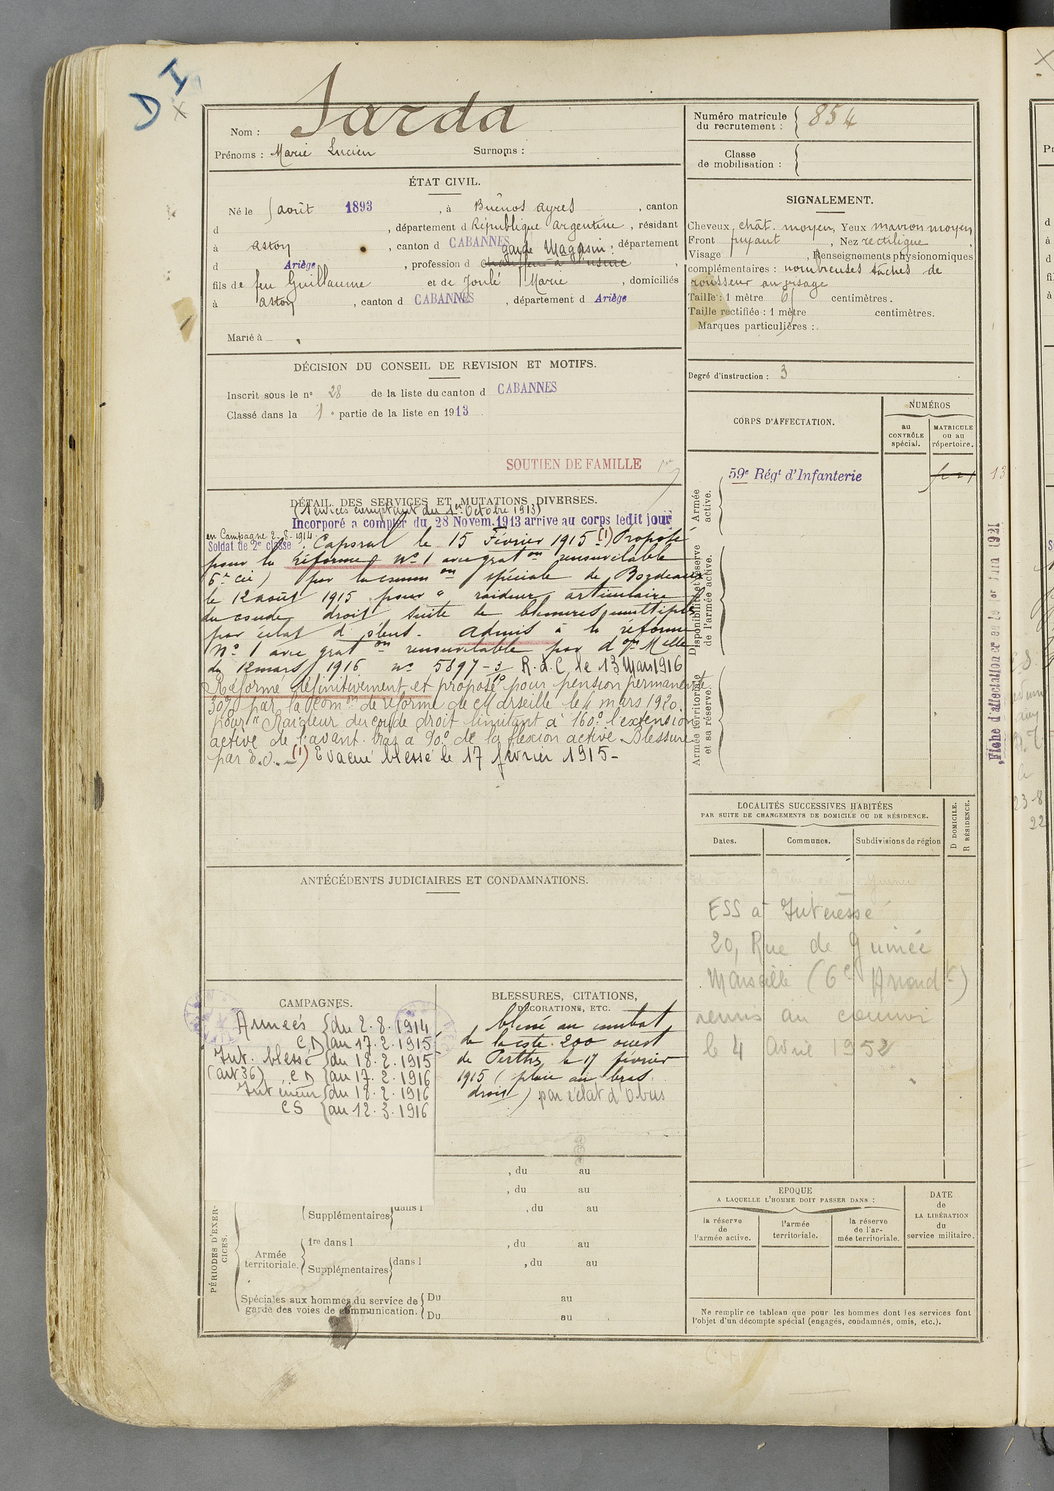 D I
X
Nom : Sarda
Prénoms : Marie Lucien Surnoms :
Numéro matricule du recrutement : 854
Classe de mobilisation :
ÉTAT CIVIL.
Né le août 1893, à Buénos ayres, canton
d , département d République argentine, résidant
à aston, canton d CABANNES, département
garde Magasin
d Ariège, profession d
fils de feu Guillaume et de Joulé Marie, domiciliés
à aston, canton d CABANNES, département d Ariège
Marié à
SIGNALEMENT.
Cheveux chât. moyen, Yeux marron moyen,
Front fuyant, Nez rectiligne
Visage , Renseignements physionomiques
complémentaires : nombreuses taches de
rousseur au visage
Taille : 1 mètre 61 centimètres.
Taille rectifiée : 1 mètre centimètres.
Marques particulières :
Degré d'instruction : 3
DÉCISION DU CONSEIL DE REVISION ET MOTIFS.
Inscrit sous le n° 28 de la liste du canton d CABANNES
Classé dans la 1e partie de la liste en 1913
SOUTIEN DE FAMILLE
CORPS D'AFFECTATION.
NUMÉROS
au CONTRÔLE spécial.
MATRICULE ou au répertoire.
59e Régt d'Infanterie
13
Armée active.
Disponibilité et réserve de l'armée active.
Armée territoriale et sa réserve.
Fiche d'affectation le 1er Juin 1921
DÉTAIL DES SERVICES ET MUTATIONS DIVERSES.
(Services comptant du 1er Octobre 1913)
Incorporé a compter du 28 Novem. 1913 arrive au corps ledit jour
en Campagne 2.8.1914
Soldat de 2e classe. Caporal le 15 Février 1915 (1) Proposé
pour la Réforme N° 1 avec graton renouvelable
6e cie) par la common spéciale de Bordeaux
le 12 août 1915 pour " raideur articulaire
du coude droit suite de blessures multiples
par éclat d'obus. Admis à la réforme
N° 1 avec graton renouvelable par don Mlle
du 12 mars 1916 n° 5897-3 R.d.C. le 13 Mars 1916
Réformé définitivement et proposé pour pension permanente
30% par la Comon de réforme de Marseille le 4 mars 1920.
pour " Raideur du coude droit limitant à 160° l'extension
active de l'avant bras à 90° de la flexion active. Blessure
par é.o. (1) Evacué blessé le 17 février 1915 -
LOCALITÉS SUCCESSIVES HABITÉES
PAR SUITE DE CHANGEMENTS DE DOMICILE OU DE RÉSIDENCE.
Dates. Communes. Subdivisions de région
D DOMICILE.
R RÉSIDENCE.
ESS à Intéressé
20, Rue de Guinée
Marseille (6e Arrondt)
remis au courrier
le 4 Avril 1952
ANTÉCÉDENTS JUDICIAIRES ET CONDAMNATIONS.
CAMPAGNES.
Armées { du 2.8.1914
CD { au 17.2.1915
Int. blessé { du 18.2.1915
(art 36) CD { au 17.2.1916
Intérieur { du 18.2.1916
CS { au 12.3.1916
BLESSURES, CITATIONS,
DÉCORATIONS, ETC.
blessé au combat
de la cote 200 ouest
de Perthes le 17 février
1915 (plaie au bras
droit) par éclat d'Obus
, du au
, du au
PÉRIODES D'EXERCICES.
Supplémentaires dans l , du au
Armée territoriale.
1re dans l , du au
Supplémentaires dans l , du au
Spéciales aux hommes du service de garde des voies de communication.
Du au
Du au
EPOQUE
A LAQUELLE L'HOMME DOIT PASSER DANS :
la réserve de l'armée active.
l'armée territoriale.
la réserve de l'armée territoriale.
DATE de LA LIBÉRATION du service militaire.
Ne remplir ce tableau que pour les hommes dont les services font
l'objet d'un décompte spécial (engagés, condamnés, omis, etc.).